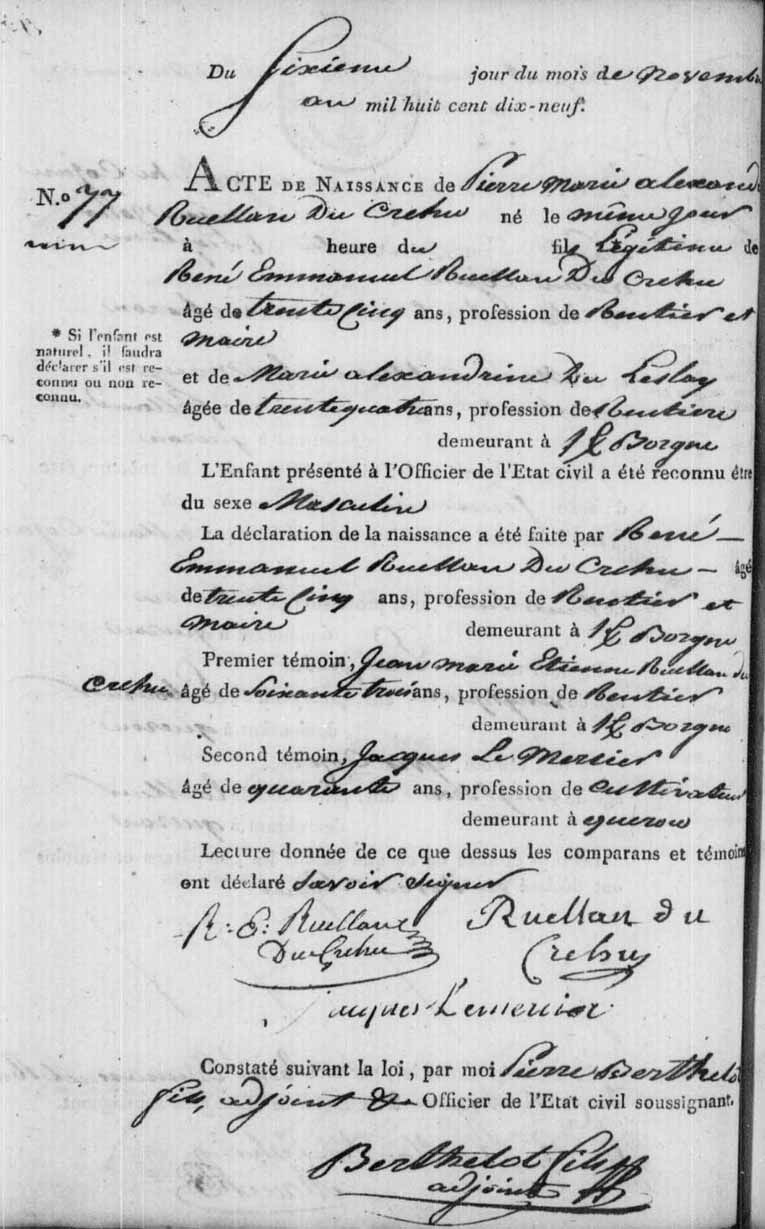 Du Sixieme jour du mois de novembre
an mil huit cent dix-neuf.
N.o 77
ACTE DE NAISSANCE de Pierre marie alexand
Ruellan Du Crehu né le même jour
à heure du fils Légitime de
René Emmanuel Ruellan Du Crehu
âgé de trente Cinq ans, profession de Rentier et
maire
* Si l'enfant est
naturel, il faudra
déclarer s'il est re-
connu ou non re-
connu.
et de Marie alexandrine Du Leslay
âgée de trente quatre ans, profession de Rentiere
demeurant à Borgne
L'Enfant présenté à l'Officier de l'Etat civil a été reconnu être
du sexe Masculin
La déclaration de la naissance a été faite par René
Emmanuel Ruellan Du Crehu âgé
de trente Cinq ans, profession de Rentier et
maire demeurant à Borgne
Premier témoin, Jean marie Etienne Ruellan du
Crehu âgé de Soixante trois ans, profession de Rentier
demeurant à Borgne
Second témoin, Jacques Le Mercier
âgé de quarante ans, profession de Cultivateur
demeurant à
Lecture donnée de ce que dessus les comparans et témoins
ont déclaré savoir signer
R: E: Ruellan Ruellan du
Du Crehu Crehu
jacques Lemercier
Constaté suivant la loi, par moi Pierre Berthelot
fils, adjoint Officier de l'Etat civil soussignant.
Berthelot fils
adjoint